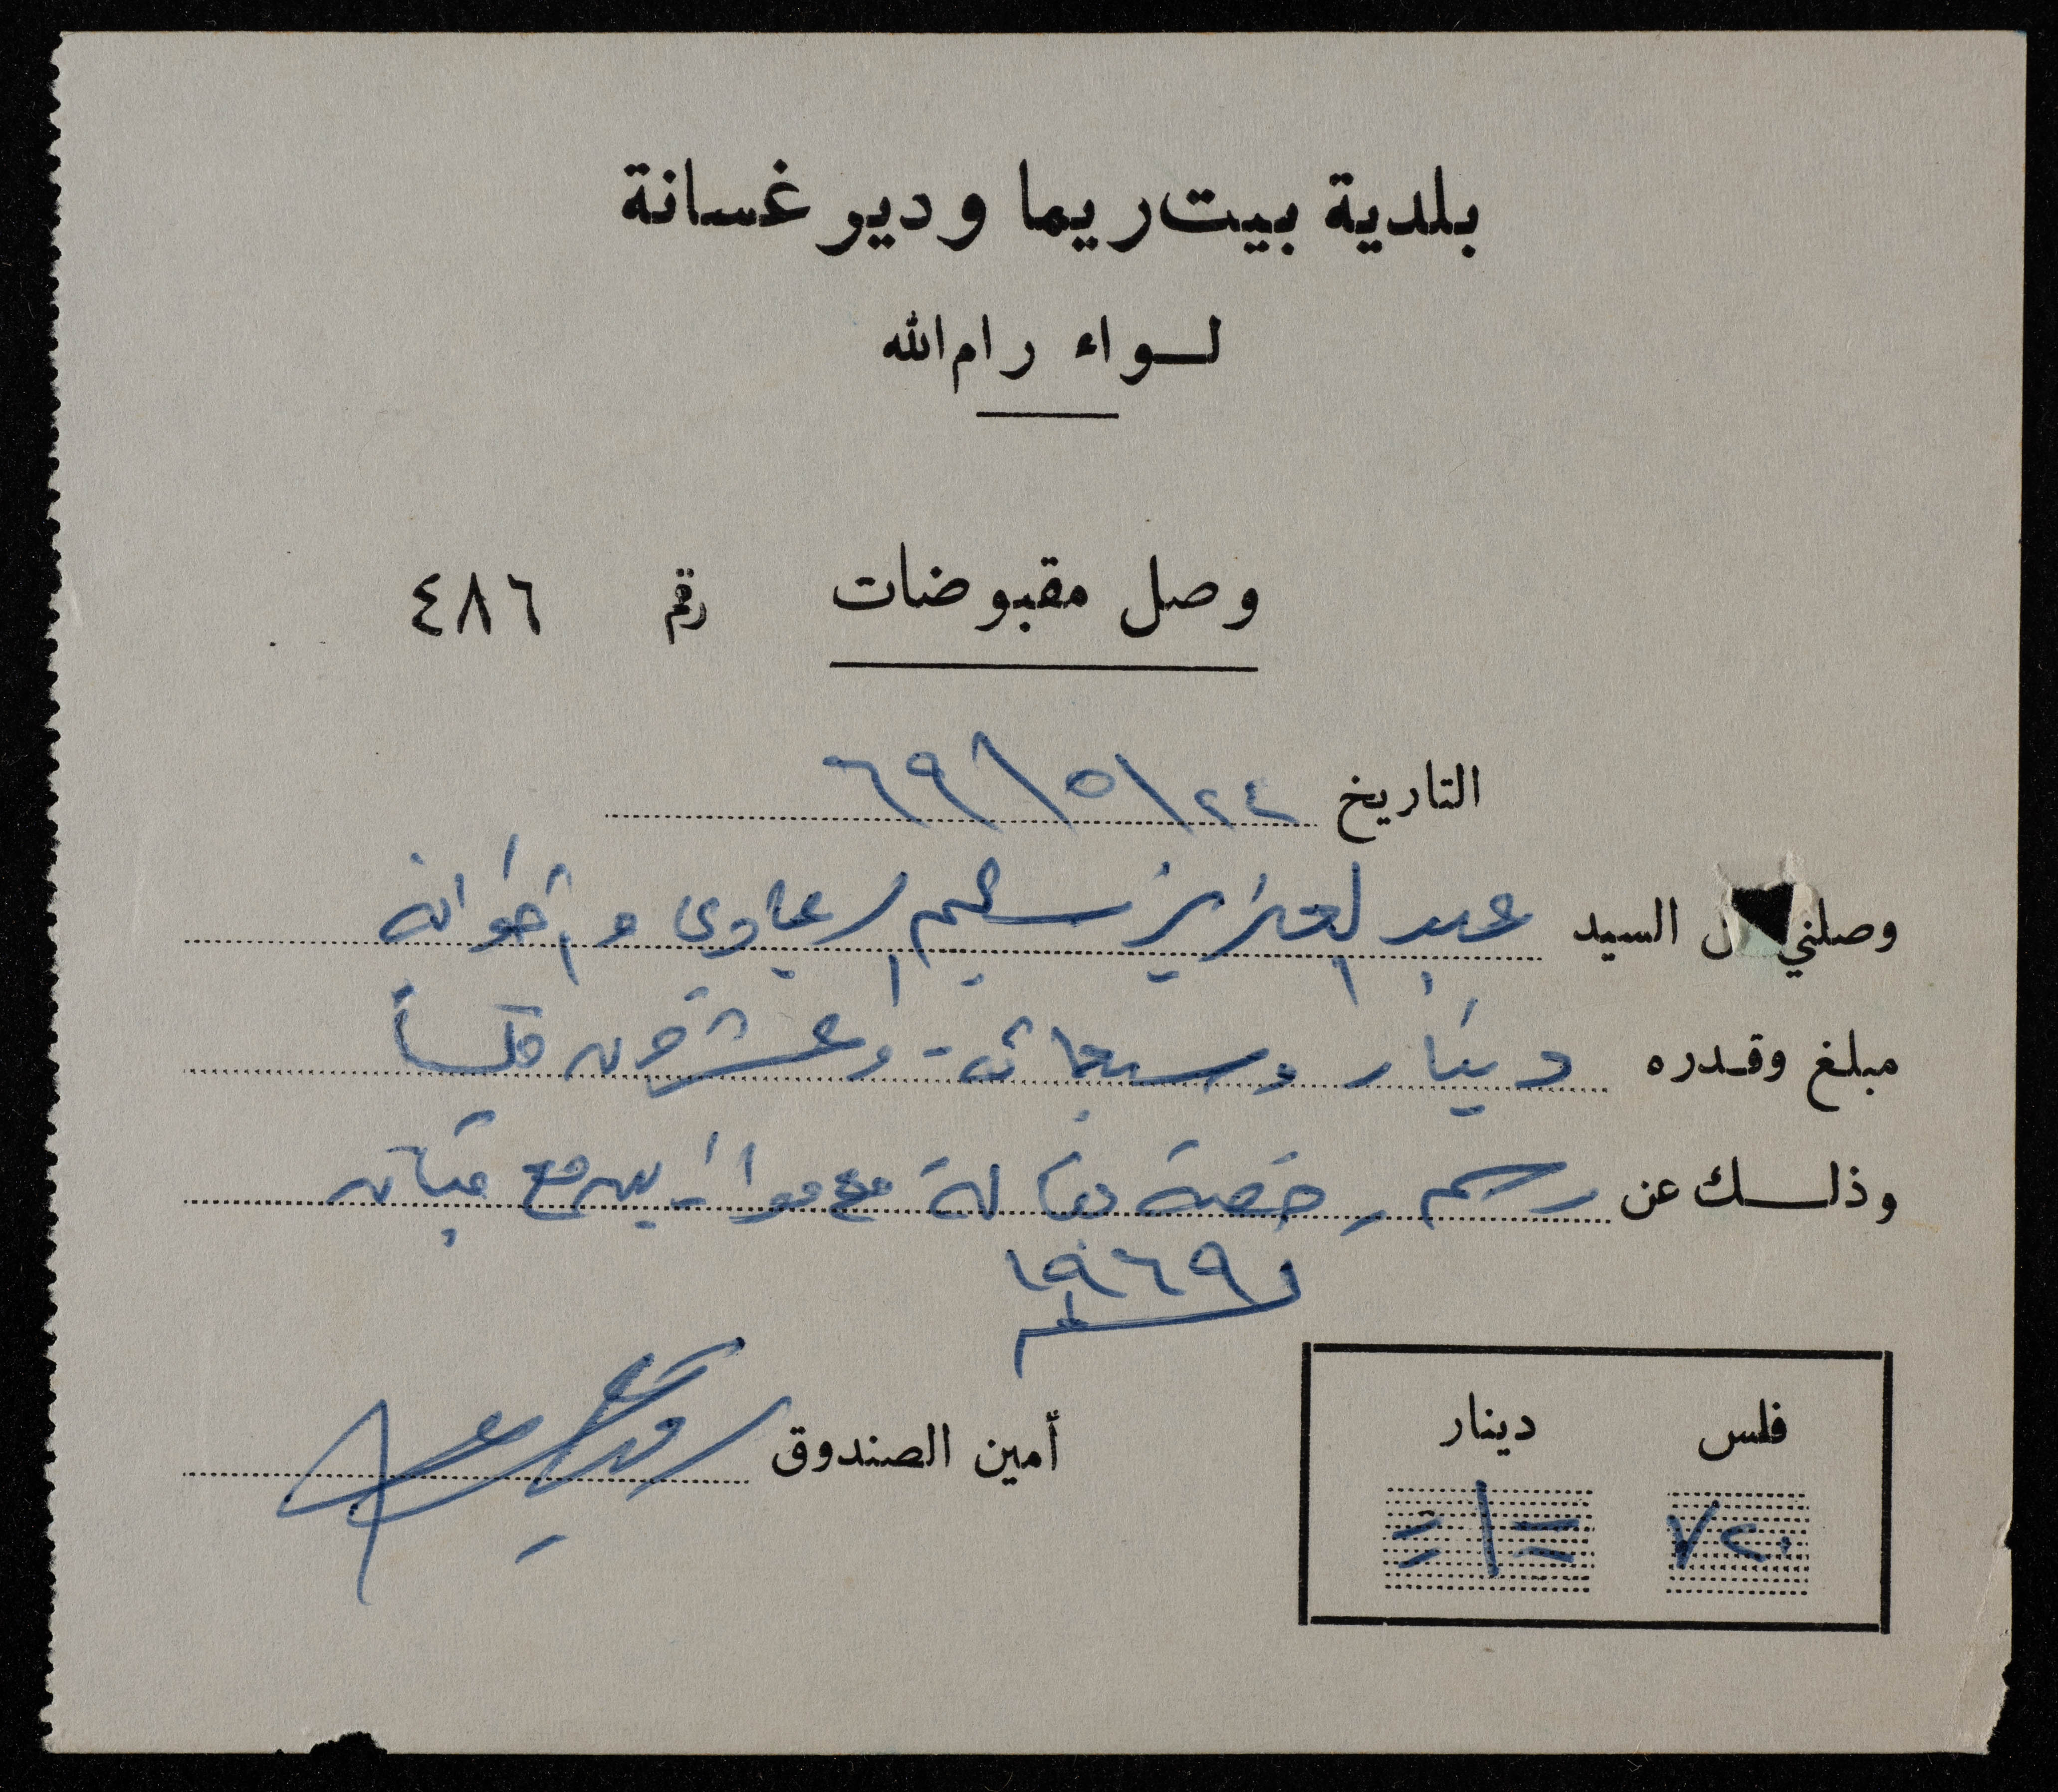 بلدية بيت ريما ودير غسانة
لواء رام الله
وصل مقبوضات رقم ٤٨٦
التاريخ ٢٤/٥/٦٩
وصلني السيد عبد العزيز سليم الرعاوي واخوانه
مبلغ وقدره دينار وسبعمائة وعشرون فلساً
وذلك عن رسم رخصة بقالة مع
لـ ١٩٦٩
فلس دينار
٧٢٠ =١=
أمين الصندوق